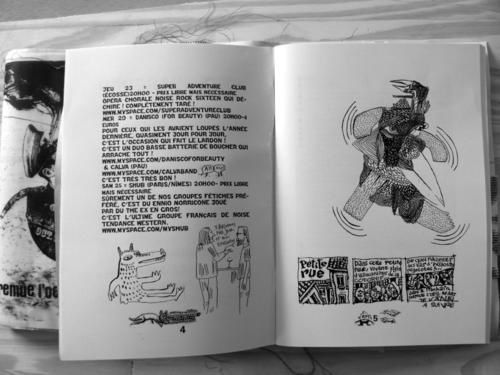 JEU 23 = SUPER ADVENTURE CLUB
(ÉCOSSE)20H00 - PRIX LIBRE MAIS NECESSAIRE
OPERA CHORALE NOISE ROCK SIXTEEN QUI DE-
CHIRE ! COMPLÈTEMENT TARE !
WWW.MYSPACE.COM/SUPERADVENTURECLUB
MER 29 = DANISCO (FOR BEAUTY) (PAU) 20H00-4
EUROS
POUR CEUX QUI LES AVAIENT LOUPES L'ANNE
DERNIÈRE, QUASIMENT JOUR POUR JOUR,
C'EST L'OCCASION QUI FAIT LE LARDON !
C'EST UN DUO BASSE BATTERIE DE BOUCHER QUI
ARRACHE TOUT !
WWW.MYSPACE.COM/DANISCOFORBEAUTY
& CALVA (PAU)
WWW.MYSPACE.COM/CALVABAND
C'EST TRÈS TRÈS BON !
SAM 25 = SHUB (PARIS/NÎMES) 20H00- PRIX LIBRE
MAIS NECESSAIRE
SÛREMENT UN DE NOS GROUPES FÉTICHES PRÉ-
FÉRÉ, C'EST DU ENNIO MORRICONE JOUÉ
PAR DU THE EX EN GROS!
C'EST L'ULTIME GROUPE FRANÇAIS DE NOISE
TENDANCE WESTERN.
WWW.MYSPACE.COM/MYSHUB
4
Petite
rue
5